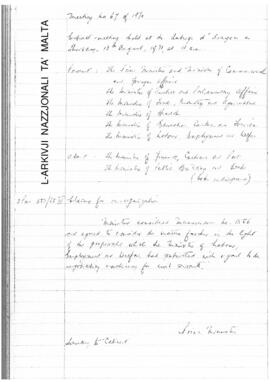 L-ARKIVJI NAZZJONALI TA' MALTA
Meeting no 67 of 1970
Cabinet meeting held at the Auberge d'Aragon on
Thursday, 13th August, 1970, at 10 a.m.
Present : The Prime Minister and Minister of Commonwealth
and Foreign Affairs
the Minister of Justice and Parliamentary Affairs
the Minister of Trade, Industry and Agriculture
the Minister of Health
the Minister of Education, Culture and Tourism
the Minister of Labour, Employment and Welfare
Absent : the Minister of Finance, Customs and Port
the Minister of Public Building and Works
(both indisposed)
for reorganization
Ministers considered Memorandum No. 1556
and agreed to consider the matter further in the light
of the proposals which the Minister of Labour,
Employment and Welfare had submitted with regard to the
negotiating machinery for civil servants.
Prime Minister
Secretary to Cabinet